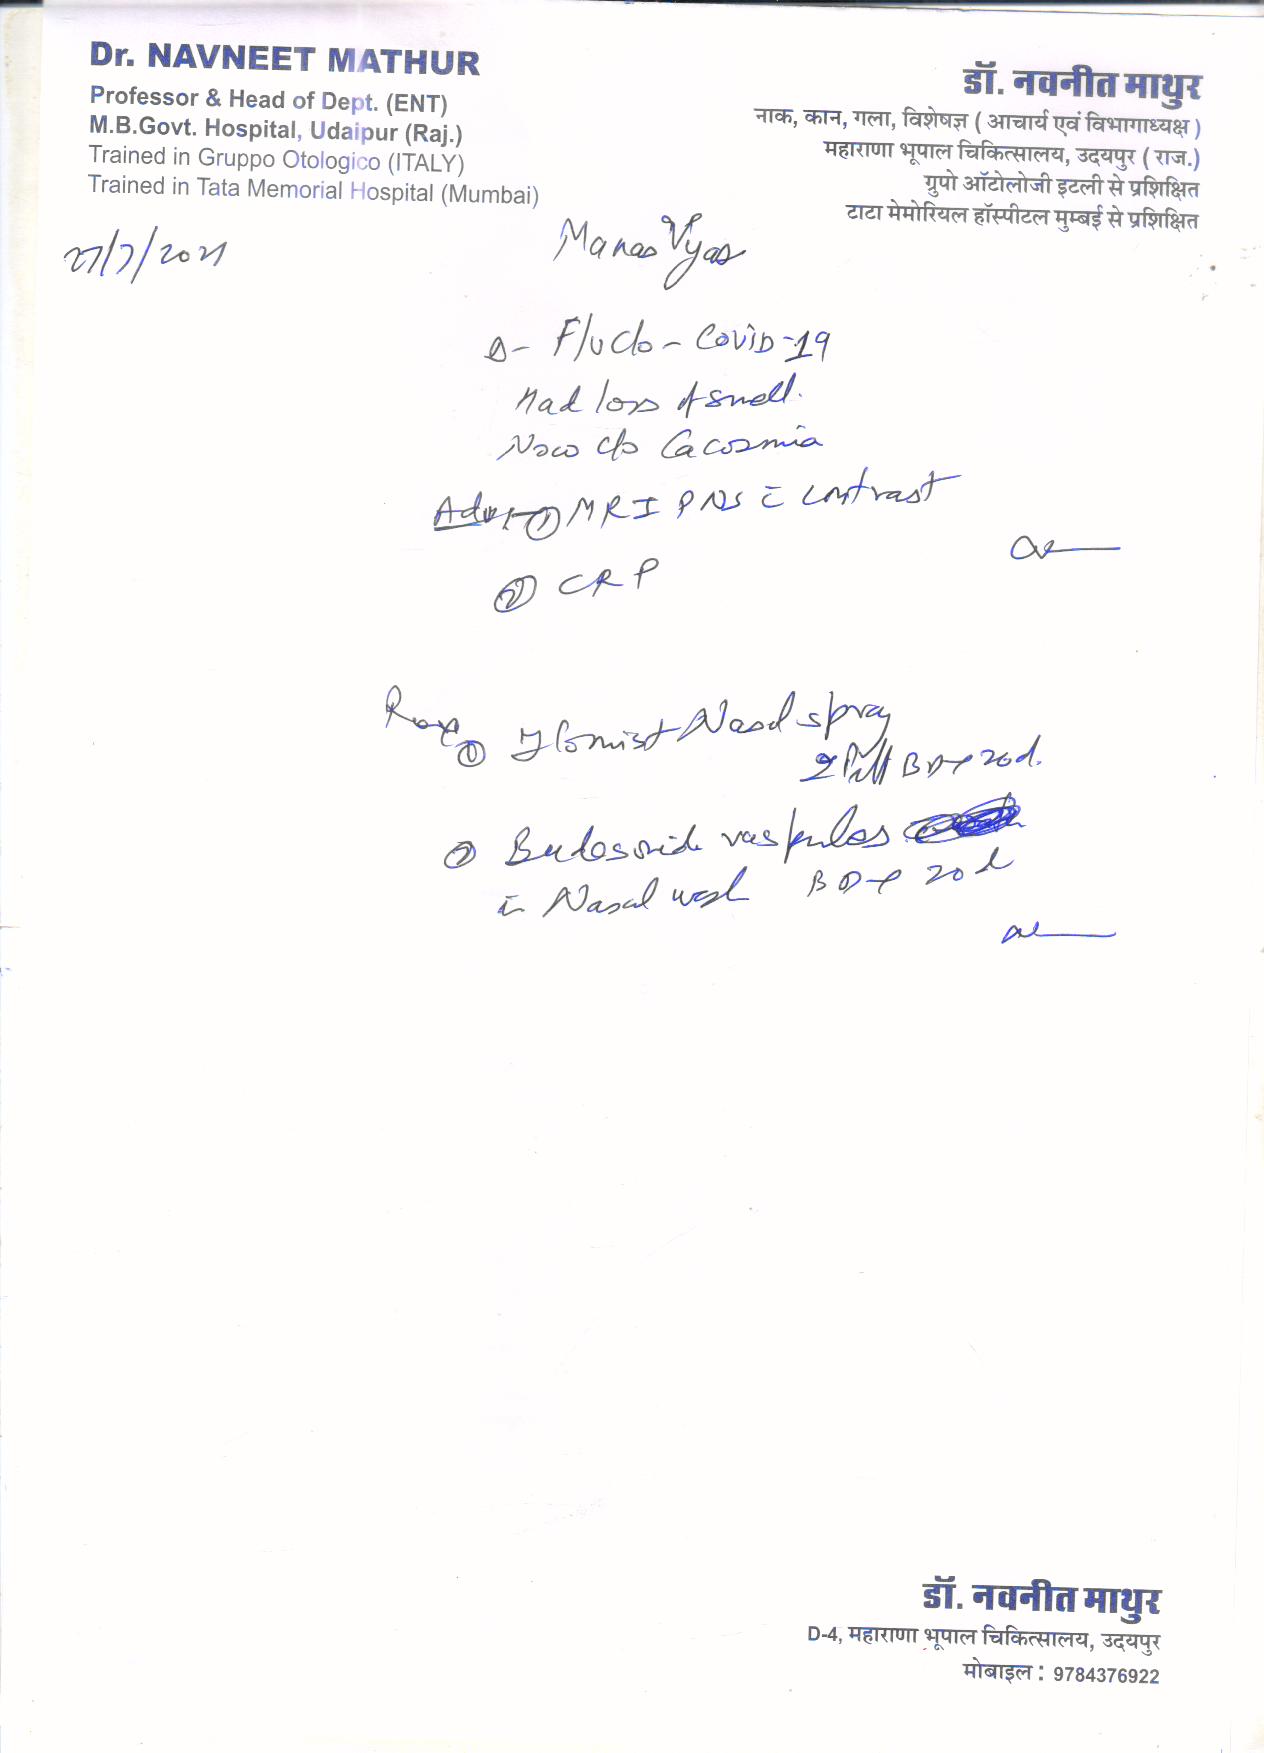 Dr. NAVNEET MATHUR
Professor & Head of Dept. (ENT)
M.B.Govt. Hospital, Udaipur (Raj.)
Trained in Gruppo Otologico (ITALY)
Trained in Tata Memorial Hospital (Mumbai)
डॉ. नवनीत माथुर
नाक, कान, गला, विशेषज्ञ ( आचार्य एवं विभागाध्यक्ष )
महाराणा भूपाल चिकित्सालय, उदयपुर ( राज.)
ग्रुपो ऑटोलोजी इटली से प्रशिक्षित
टाटा मेमोरियल हॉस्पीटल मुम्बई से प्रशिक्षित
27/7/2021
Manas Vyas
F/u c/o - Covid-19
Had loss of smell.
Now c/o Cacosmia
Adv:- ① MRI PNS c̄ contrast
② CRP
① Nasal spray
2 Puff BD x 20d.
② Budesonide respules
in Nasal wash BD x 20d
डॉ. नवनीत माथुर
D-4, महाराणा भूपाल चिकित्सालय, उदयपुर
मोबाइल : 9784376922